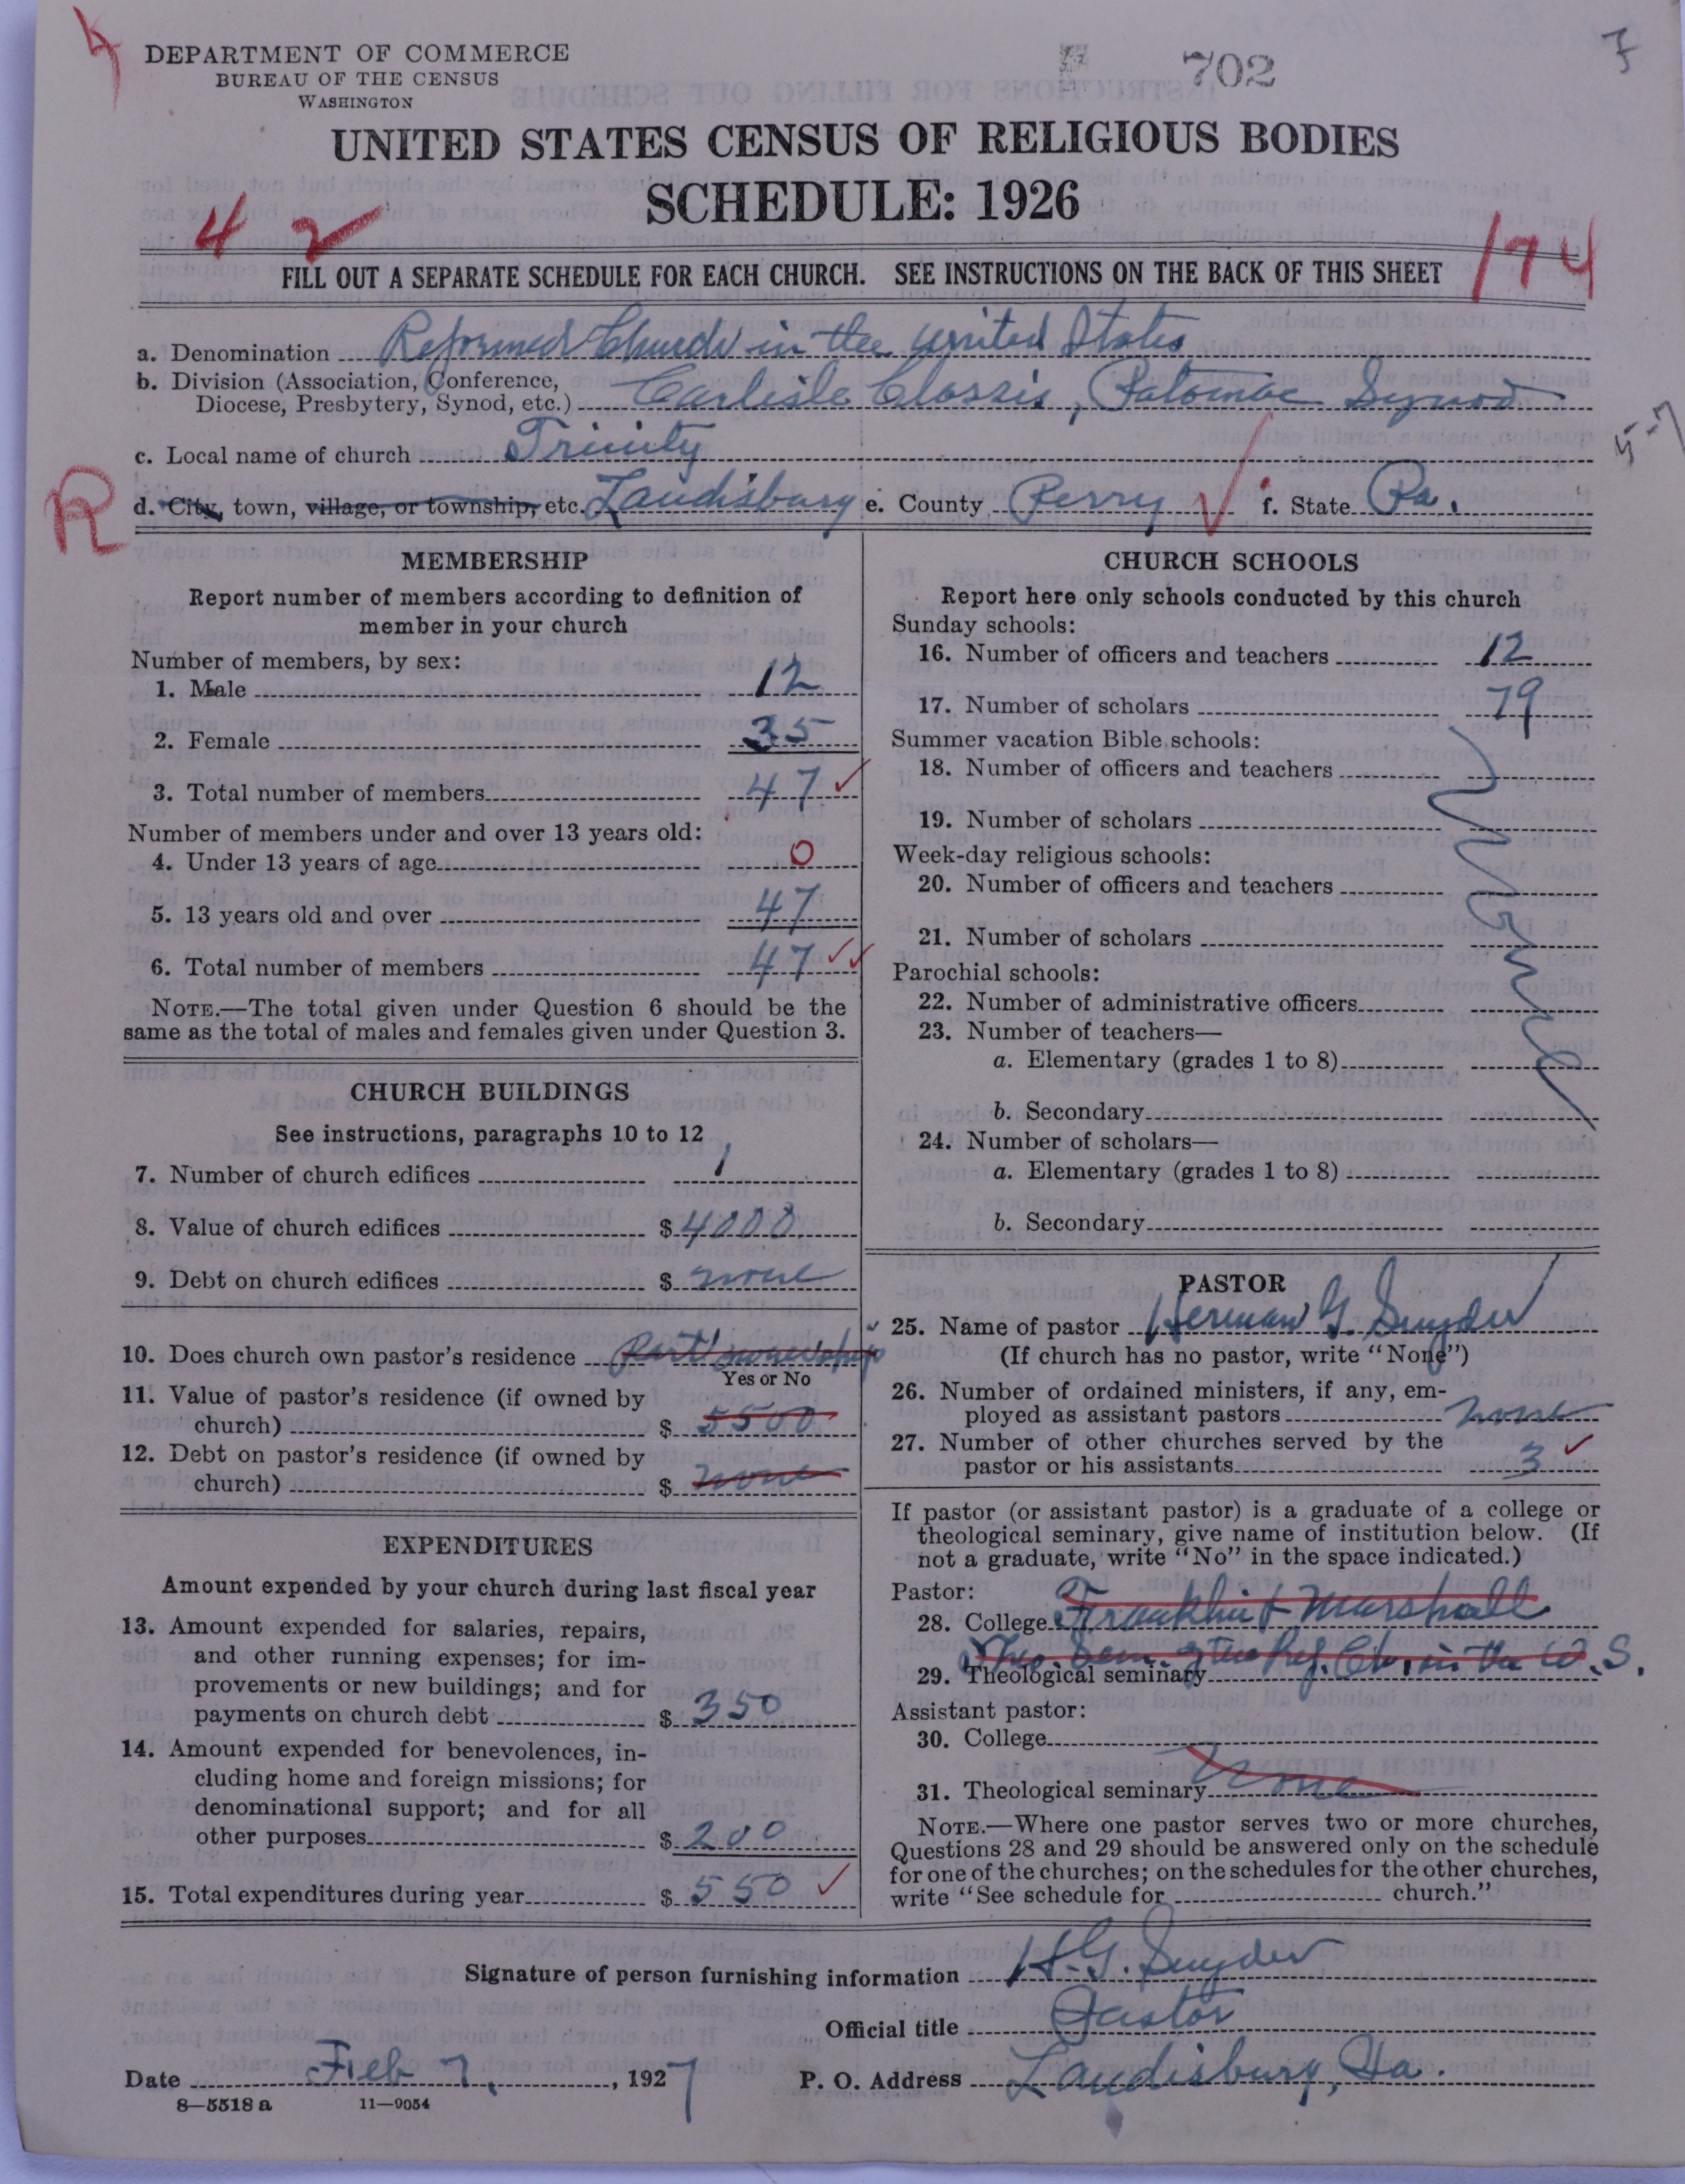 4
DEPARTMENT OF COMMERCE
BUREAU OF THE CENSUS
WASHINGTON
702
7
UNITED STATES CENSUS OF RELIGIOUS BODIES
SCHEDULE: 1926
4 2
174
FILL OUT A SEPARATE SCHEDULE FOR EACH CHURCH. SEE INSTRUCTIONS ON THE BACK OF THIS SHEET
a. Denomination Reformed Church in the United States
b. Division (Association, Conference,
Diocese, Presbytery, Synod, etc.) Carlisle Classis, Potomac Synod
5-7
c. Local name of church Trinity
R
d. City, town, village, or township, etc. Landisburg e. County Perry f. State Pa.
MEMBERSHIP
Report number of members according to definition of
member in your church
Number of members, by sex:
1. Male 12
2. Female 35
3. Total number of members 47 ✓
Number of members under and over 13 years old:
4. Under 13 years of age 0
5. 13 years old and over 47
6. Total number of members 47 ✓✓
NOTE.—The total given under Question 6 should be the
same as the total of males and females given under Question 3.
CHURCH BUILDINGS
See instructions, paragraphs 10 to 12
7. Number of church edifices 1
8. Value of church edifices $ 4000.
9. Debt on church edifices $ none
10. Does church own pastor's residence Part ownership
Yes or No
11. Value of pastor's residence (if owned by
church) $ 5500
12. Debt on pastor's residence (if owned by
church) $ none
EXPENDITURES
Amount expended by your church during last fiscal year
13. Amount expended for salaries, repairs,
and other running expenses; for im-
provements or new buildings; and for
payments on church debt $ 350
14. Amount expended for benevolences, in-
cluding home and foreign missions; for
denominational support; and for all
other purposes $ 200
15. Total expenditures during year $ 550 ✓
CHURCH SCHOOLS
Report here only schools conducted by this church
Sunday schools:
16. Number of officers and teachers 12
17. Number of scholars 79
Summer vacation Bible schools:
18. Number of officers and teachers
19. Number of scholars
Week-day religious schools:
20. Number of officers and teachers
21. Number of scholars
Parochial schools:
22. Number of administrative officers
23. Number of teachers—
a. Elementary (grades 1 to 8)
b. Secondary
24. Number of scholars—
a. Elementary (grades 1 to 8)
b. Secondary
PASTOR
25. Name of pastor Herman G. Snyder
(If church has no pastor, write "None")
26. Number of ordained ministers, if any, em-
ployed as assistant pastors none
27. Number of other churches served by the
pastor or his assistants 3 ✓
If pastor (or assistant pastor) is a graduate of a college or
theological seminary, give name of institution below. (If
not a graduate, write "No" in the space indicated.)
Pastor:
28. College Franklin & Marshall
29. Theological seminary Theo. Sem. of the Ref. Ch. in the U.S.
Assistant pastor:
30. College
31. Theological seminary None
NOTE.—Where one pastor serves two or more churches,
Questions 28 and 29 should be answered only on the schedule
for one of the churches; on the schedules for the other churches,
write "See schedule for church."
Signature of person furnishing information H. G. Snyder
Official title Pastor
Date Feb 7, 1927
P. O. Address Landisburg, Pa.
8—5518 a 11—9054